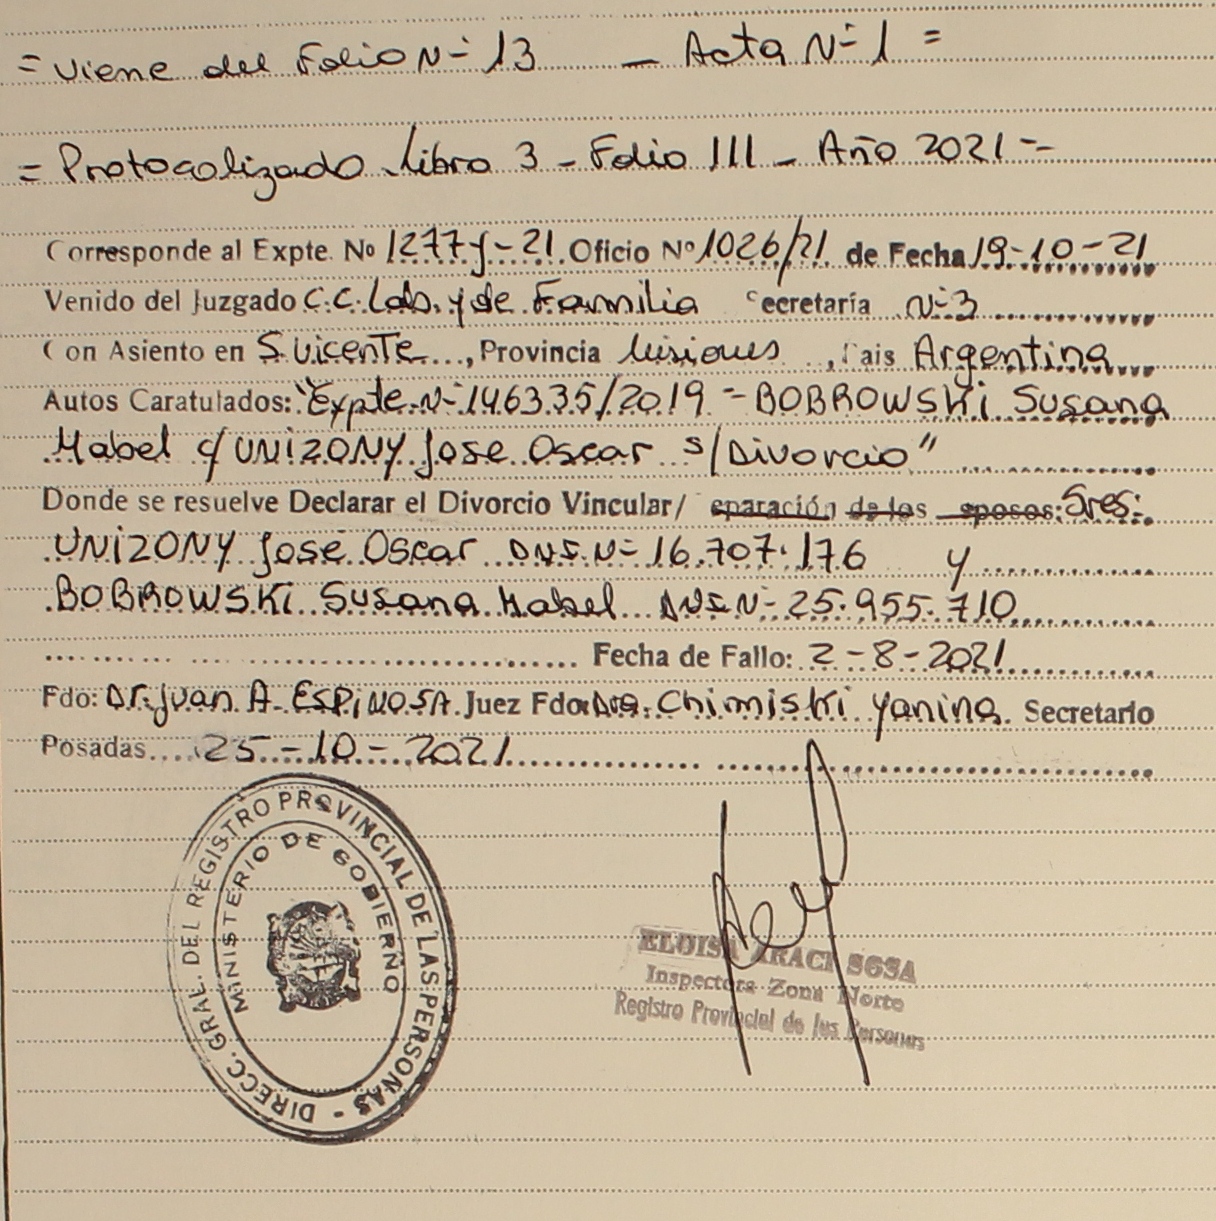 = Viene del Folio N- 13 _ Acta N- 1 =
= Protocolizado Libro 3 - Folio 111 - Año 2021 --
Corresponde al Expte. No 1277 y-21 Oficio Nº 1026/21 de Fecha 19-10-21
Venido del Juzgado C.C. Lab. y de Familia ecretaría N-3
Con Asiento en S. Vicente, Provincia Misiones, Pais Argentina
Autos Caratulados: "Expte. N- 146335/2019 - BOBROWSKi Susana
Mabel c/ UNIZONY Jose Oscar s/Divorcio"
Donde se resuelve Declarar el Divorcio Vincular/ eparación de los sposos: Sres:
UNIZONY José Oscar D.N.I. N- 16.707.176 y
BOBROWSKi Susana Mabel DNI N- 25.955.710
Fecha de Fallo: 2-8-2021
Fdo: Dr. Juan A. ESPINOSA Juez Fdo: Dra. Chimiski Yanina. Secretario
Posadas 25-10-2021
DIRECC. GRAL. DEL REGISTRO PROVINCIAL DE LAS PERSONAS -
MINISTERIO DE GOBIERNO
ELOISA ARACI SOSA
Inspectora Zona Norte
Registro Provincial de las Personas